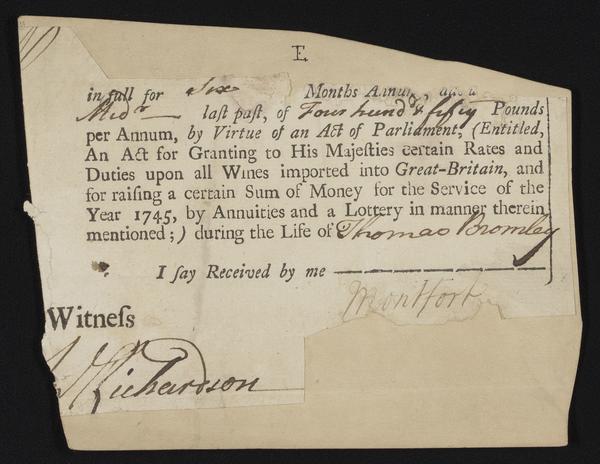 E.
in full for Six Months Annuity, due at
Midr last paſt, of Four hundd & fifty Pounds
per Annum, by Virtue of an Act of Parliament, (Entitled,
An Act for Granting to His Majeſties certain Rates and
Duties upon all Wines imported into Great-Britain, and
for raiſing a certain Sum of Money for the Service of the
Year 1745, by Annuities and a Lottery in manner therein
mentioned;) during the Life of Thomas Bromley
I ſay Received by me
Montfort
Witneſs
Richardson